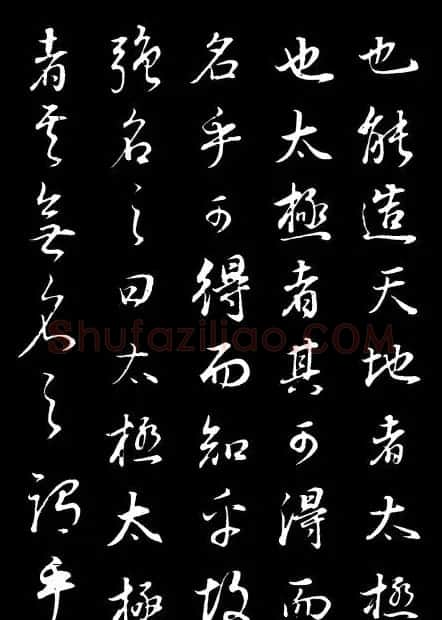 也能造天地者太極
也太極者其可得而
名乎可得而知乎故
強名之曰太極太極
者其無名之謂乎
Shufaziliao.COM